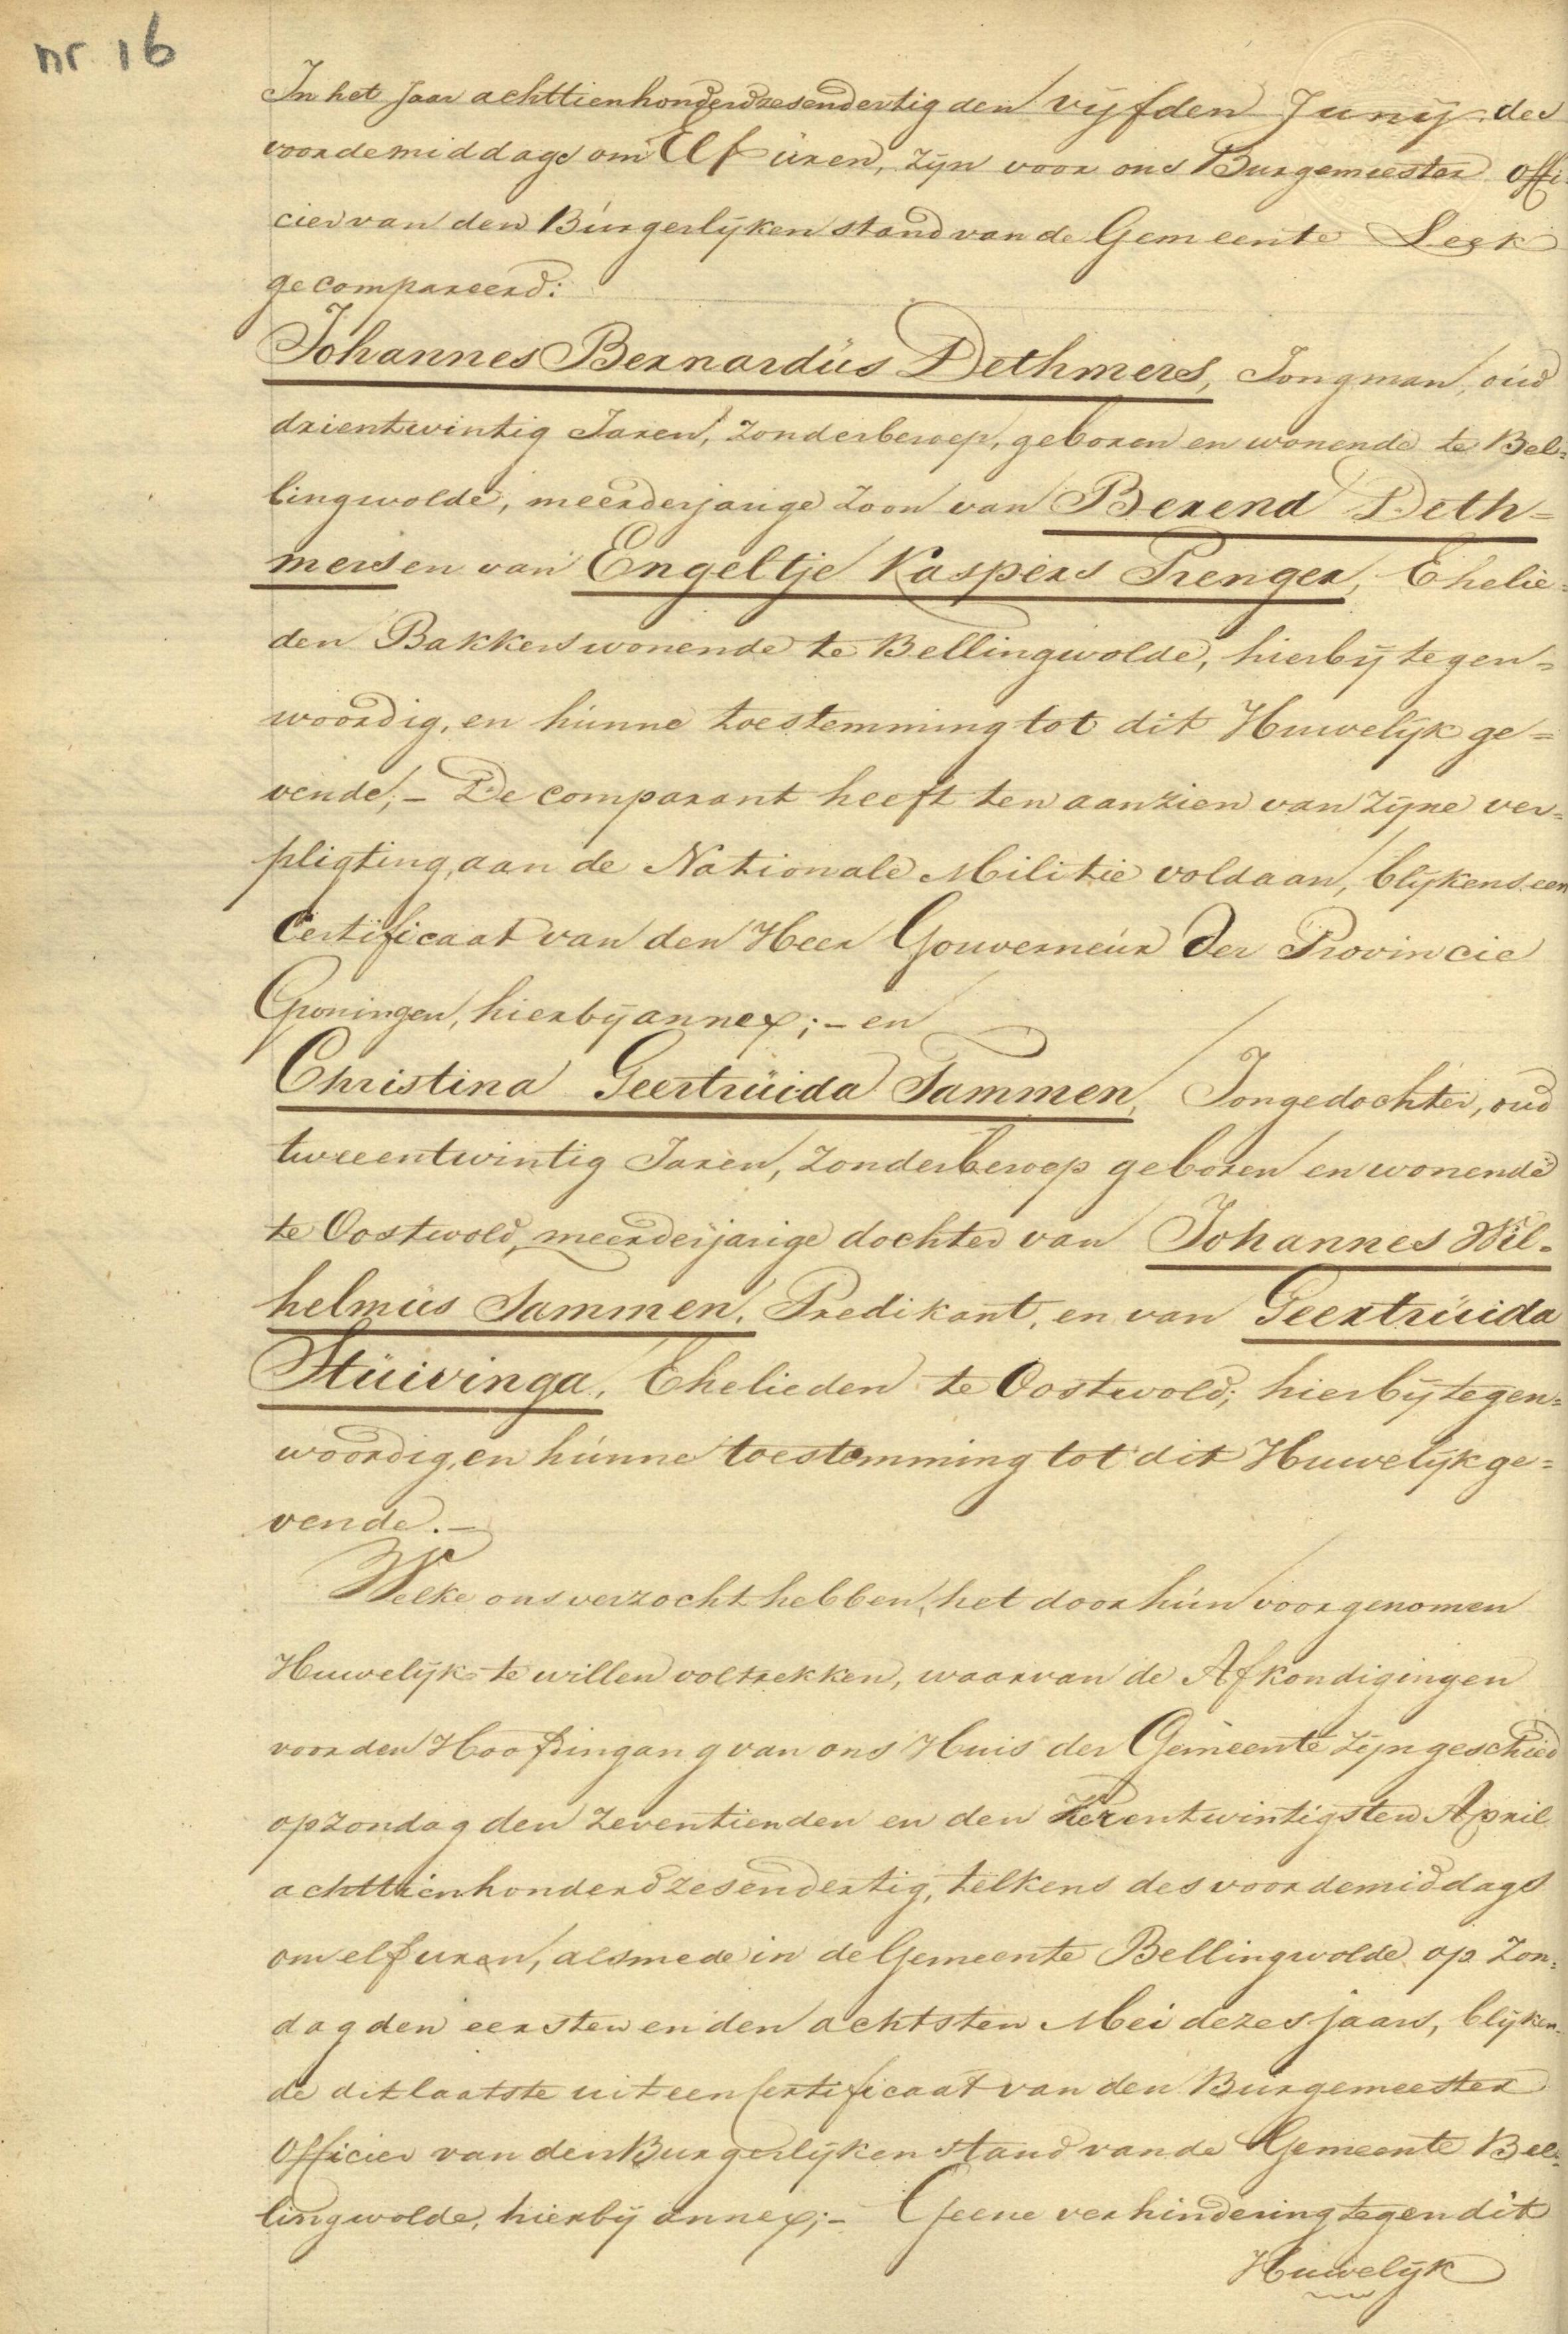 nr 16
In het Jaar achttienhonderdzesendertig den vyfden Juny, des
voordemiddags om Elf üren, zyn voor ons Burgemeester Offi-
cier van den Bürgerlyken stand van de Gemeente Leek
gecompareerd:
Johannes Bernardüs Dethmers, Jongman, oüd
drientwintig Jaren, zonderberoep, geboren en wonende te Bel=
lingwolde, meerderjarige zoon van Berend Deth=
mers en van Engeltje Kaspers Prenger, Ehelie=
den Bakkers wonende te Bellingwolde, hierby tegen=
woordig, en hünne toestemming tot dit Huwelyk ge=
vende; – De comparant heeft ten aanzien van zyne ver=
pligting, aan de Nationale Militie voldaan, blykens een
Certificaat van den Heer Gouverneür der Provincie
Groningen, hierby annex; – en
Christina Geertrüida Tammen, Jongedochter, oud
tweeentwintig Jaren, zonderberoep geboren en wonende
te Oostwold, meerderjarige dochter van Johannes Wil=
helmüs Tammen, Predikant, en van Geertrüida
Stüivinga, Ehelieden te Oostwold; hierby tegen=
woordig, en hünne toestemming tot dit Huwelyk ge=
vende. –
Welke ons verzocht hebben, het door hün voorgenomen
Huwelyk te willen voltrekken, waarvan de Afkondigingen
voor den Hoofdingang van ons Huis der Gemeente zyn geschied
op zondag den zeventienden en den vierentwintigsten April
achttienhonderdzesendertig, telkens des voordemiddags
om elf uren, alsmede in de Gemeente Bellingwolde op Zon=
dag den eersten en den achtsten Mei dezes jaars, blyken=
de dit laatste uit een Certificaat van den Burgemeester
Officier van den Burgerlyken stand van de Gemeente Bel=
lingwolde, hierby annex; – Geene verhindering tegen dit
Huwelyk